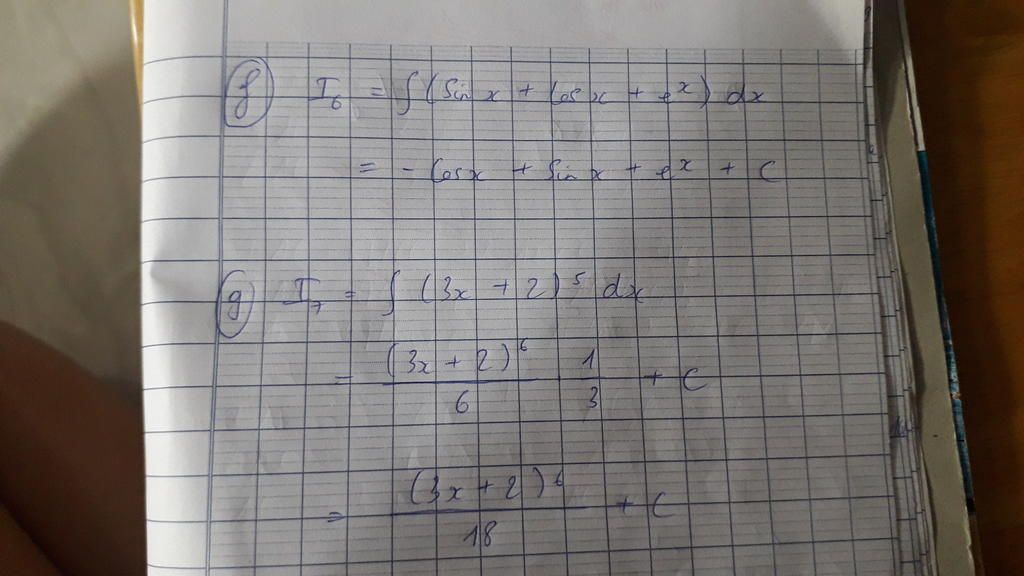 f) I₆ = ∫ (sin x + cos x + eˣ) dx
= - cos x + sin x + eˣ + C
g) I₇ = ∫ (3x + 2)⁵ dx
= (3x + 2)⁶ / 6 · 1/3 + C
= (3x + 2)⁶ / 18 + C